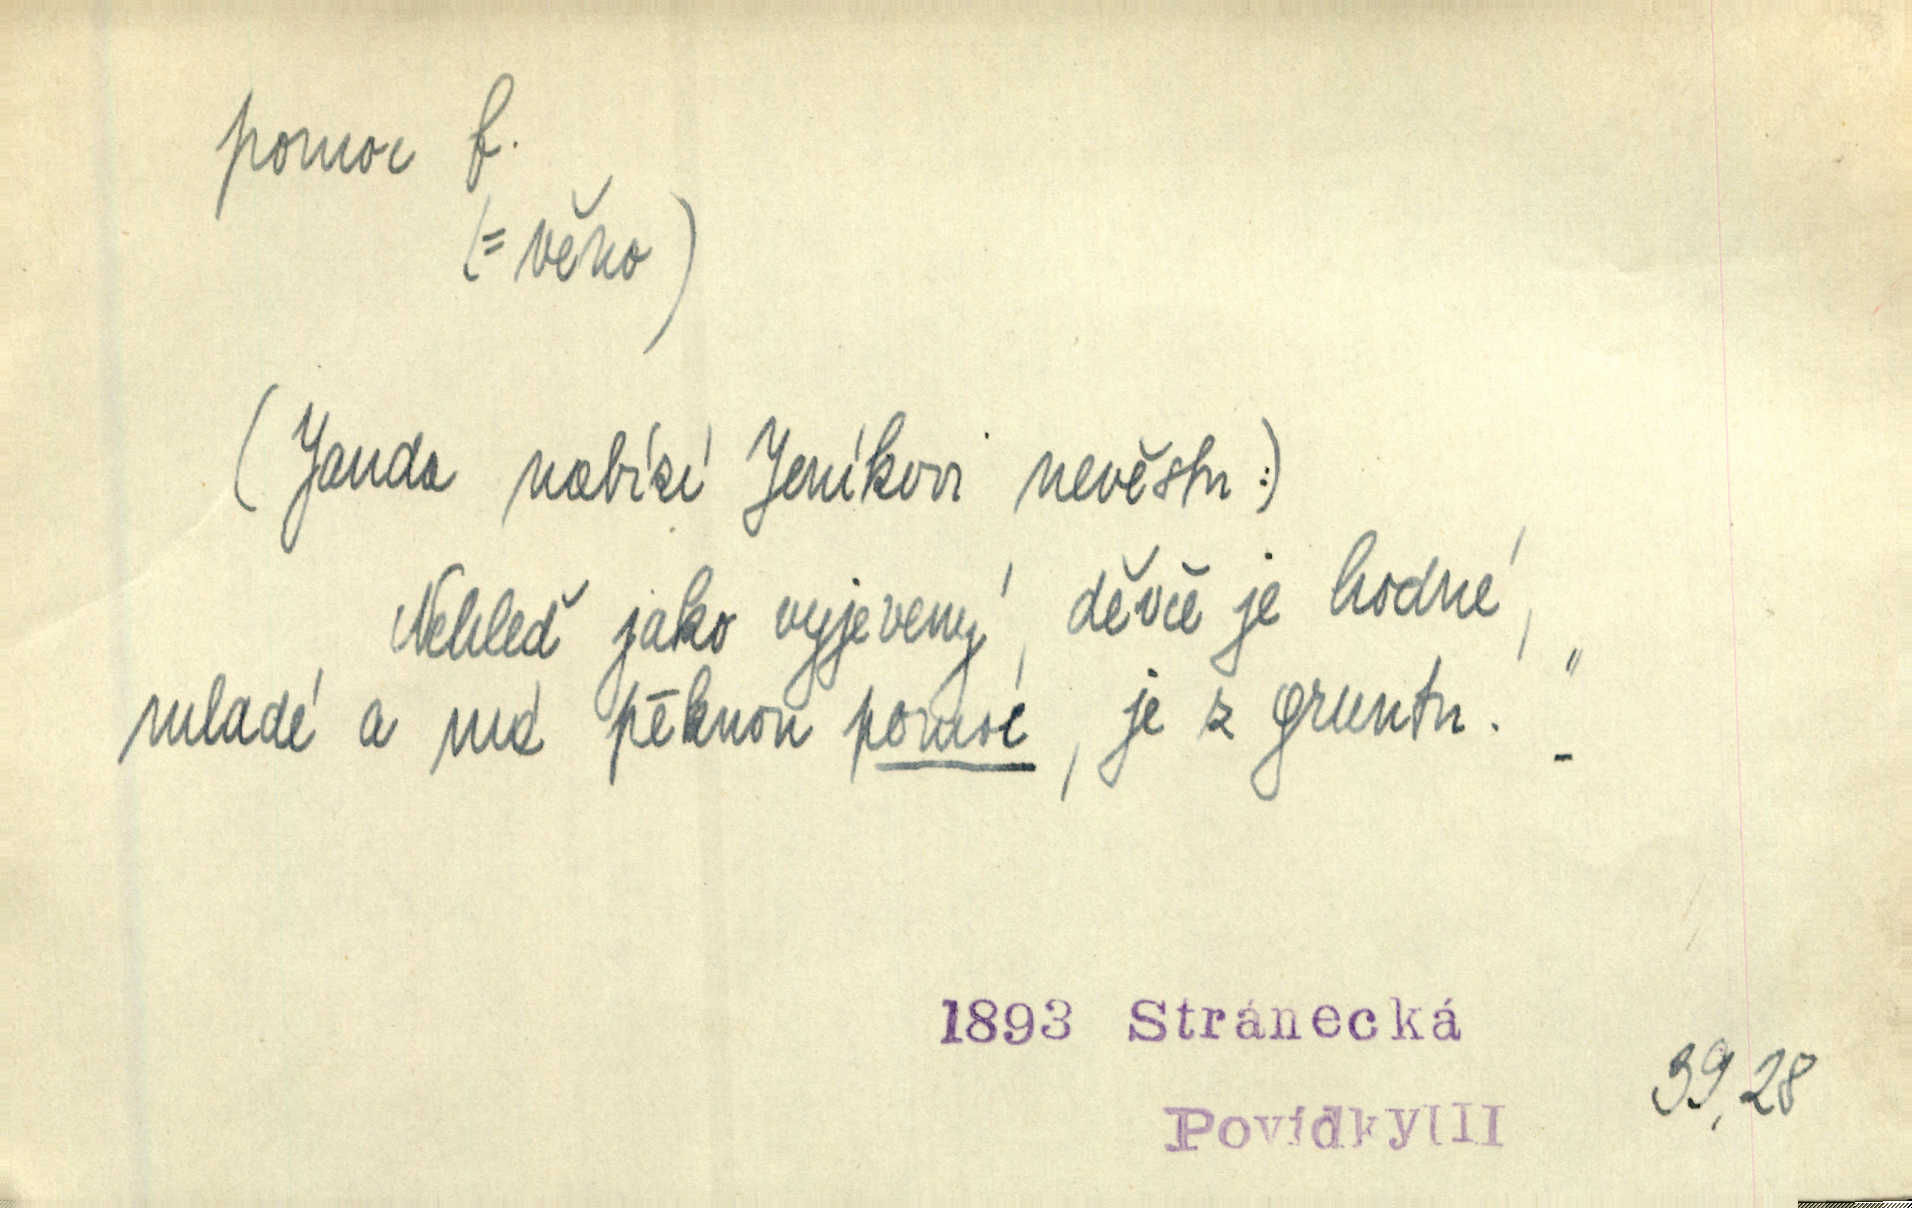 pomoc f.
(= věno)
(Janda nabízí Jeníkovi nevěstu:)
Nehleď jako vyjevený, děvče je hodné,
mladé a má pěknou pomoc, je z gruntu. "-
1893 Stránecká
39,28
Povídky III